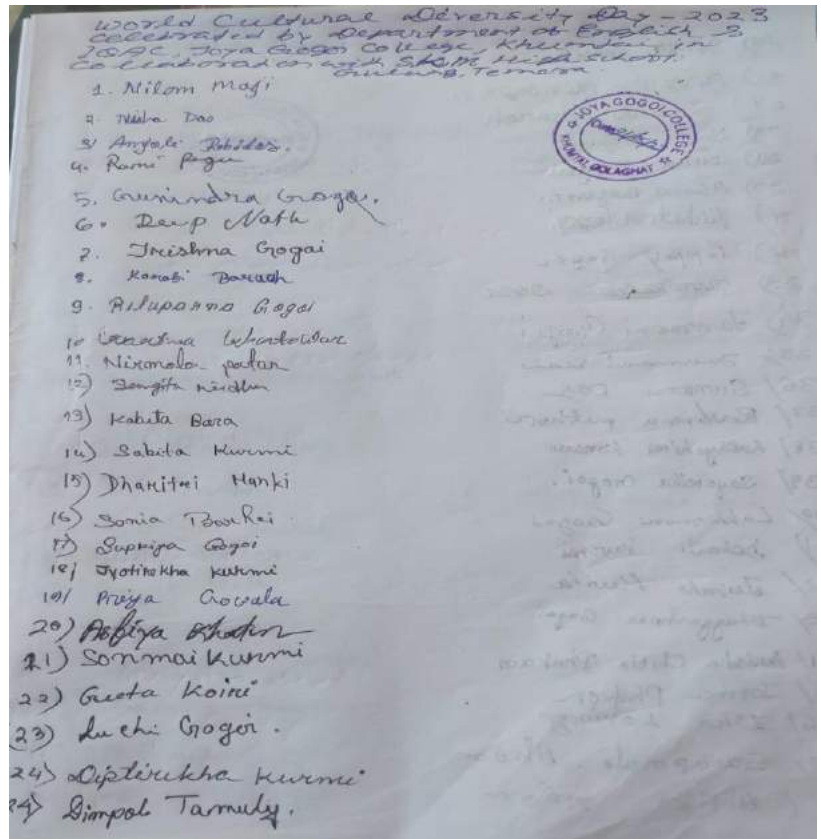 World Cultural Diversity Day - 2023
Celebrated by Department of English &
IQAC, Joya Gogoi College, Khumtai, in
Collaboration with SKM High School.
Temera.
JOYA GOGOI COLLEGE
KHUMTAI, GOLAGHAT
1. Nilom Magi
2. Nisha Das
3/ Anjali Robidas.
4. Rami Pegu
5. Gunindra Gogoi.
6. Deep Nath
7. Trishna Gogai
8. Karabi Baruah
9. Rituparna Gogoi
10
11. Nirmola
12)
13) Kabita Bara
14) Sabita Kurmi
15) Dharitri Manki
16) Sonia
17) Supriya Gogoi
18/ Jyotirekha Kurmi
19/ Priya Gowala
20) Asfiya Khatun
21) Sonmai Kurmi
22) Geeta Koiri
23) Luchi Gogoi.
24) Diptirekha Kurmi
24) Dimpol Tamuly.